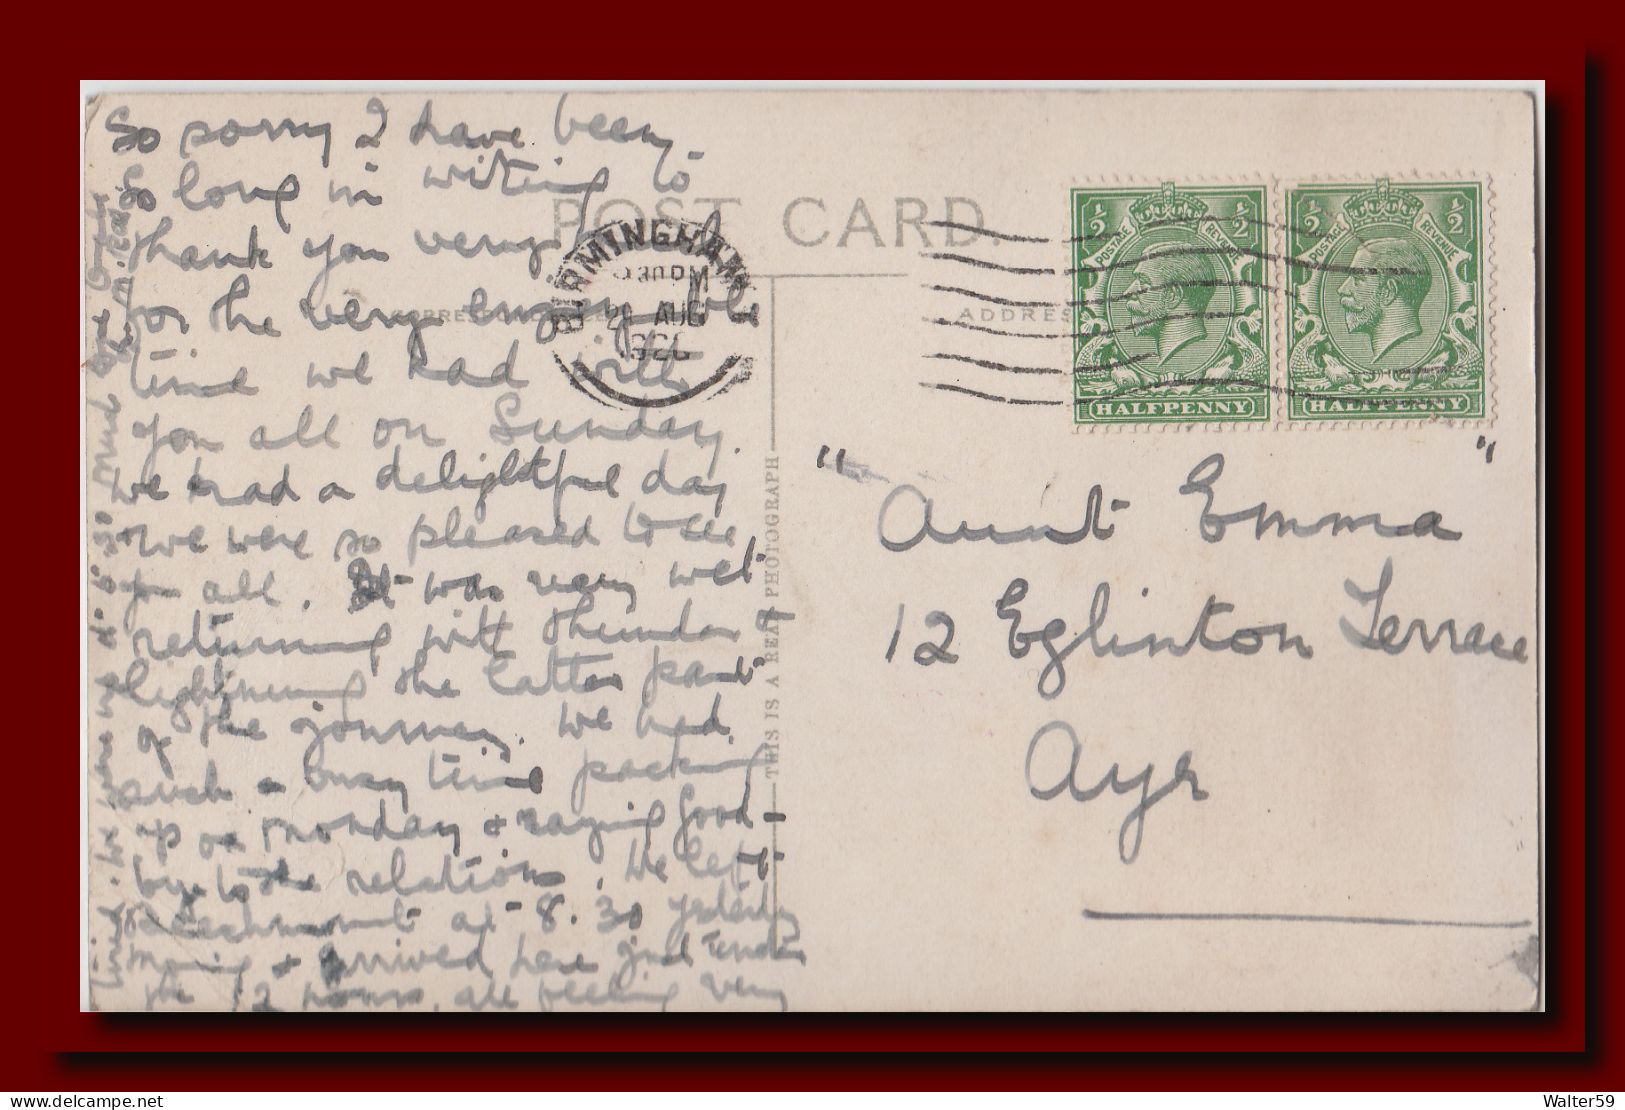 So sorry I have been
so long in writing to
thank you very much
for the very enjoyable
time we had with
you all on Sunday.
We had a delightful day
& we were so pleased to see
you all. It was very wet
returning with thunder &
lightning the latter part
of the journey. We had
such a busy time packing
up on Monday & saying good-
bye to the relations. We left
at 8.30 yesterday
morning & arrived here just under
the 12 hours, all feeling very
tired. We were up at 5.30
POST CARD.
CORRESPONDENCE
ADDRESS
THIS IS A REAL PHOTOGRAPH
BIRMINGHAM
30 PM
AUG
POSTAGE REVENUE
½ ½
HALFPENNY
POSTAGE REVENUE
½ ½
HALFPENNY
" "
Aunt Emma
12 Eglinton Terrace
Ayr
delcampe.net
Walter59